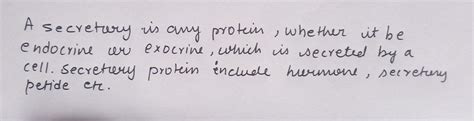 A secretory is any protein, whether it be
endocrine or exocrine, which is secreted by a
cell. Secretory protein include hurmone, secretory
petide etc.